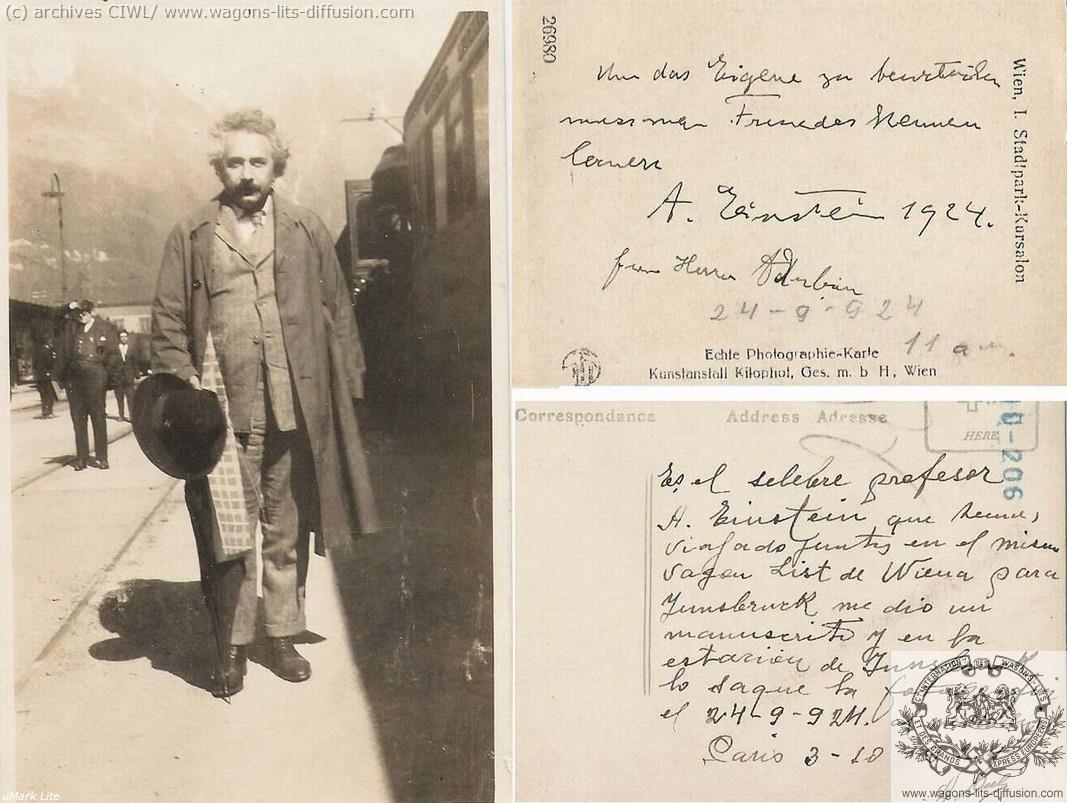 (c) archives CIWL/ www.wagons-lits-diffusion.com
26980
Um das Eigene zu beurteilen
muss man Fremdes kennen
lernen
A. Einstein 1924.
Herrn
24-9-924
11 a m.
Wien, I. Stadtpark-Kursalon
Echte Photographie-Karte
Kunstanstalt Kilophot, Ges. m. b H., Wien
Correspondance Address Adresse
HERE
0-206
Es el selebre profesor
A. Einstein que hemos
viajado juntos en el mismo
vagon List de Wiena para
Junsbruck me dio un
manuscrito y en la
estación de
lo saque la
el 24-9-924.
Paris 3-10
Cie INTERNATIONALE DES WAGONS-LITS
ET DES GRANDS EXPRESS EUROPEENS
www.wagons-lits-diffusion.com
uMark Lite